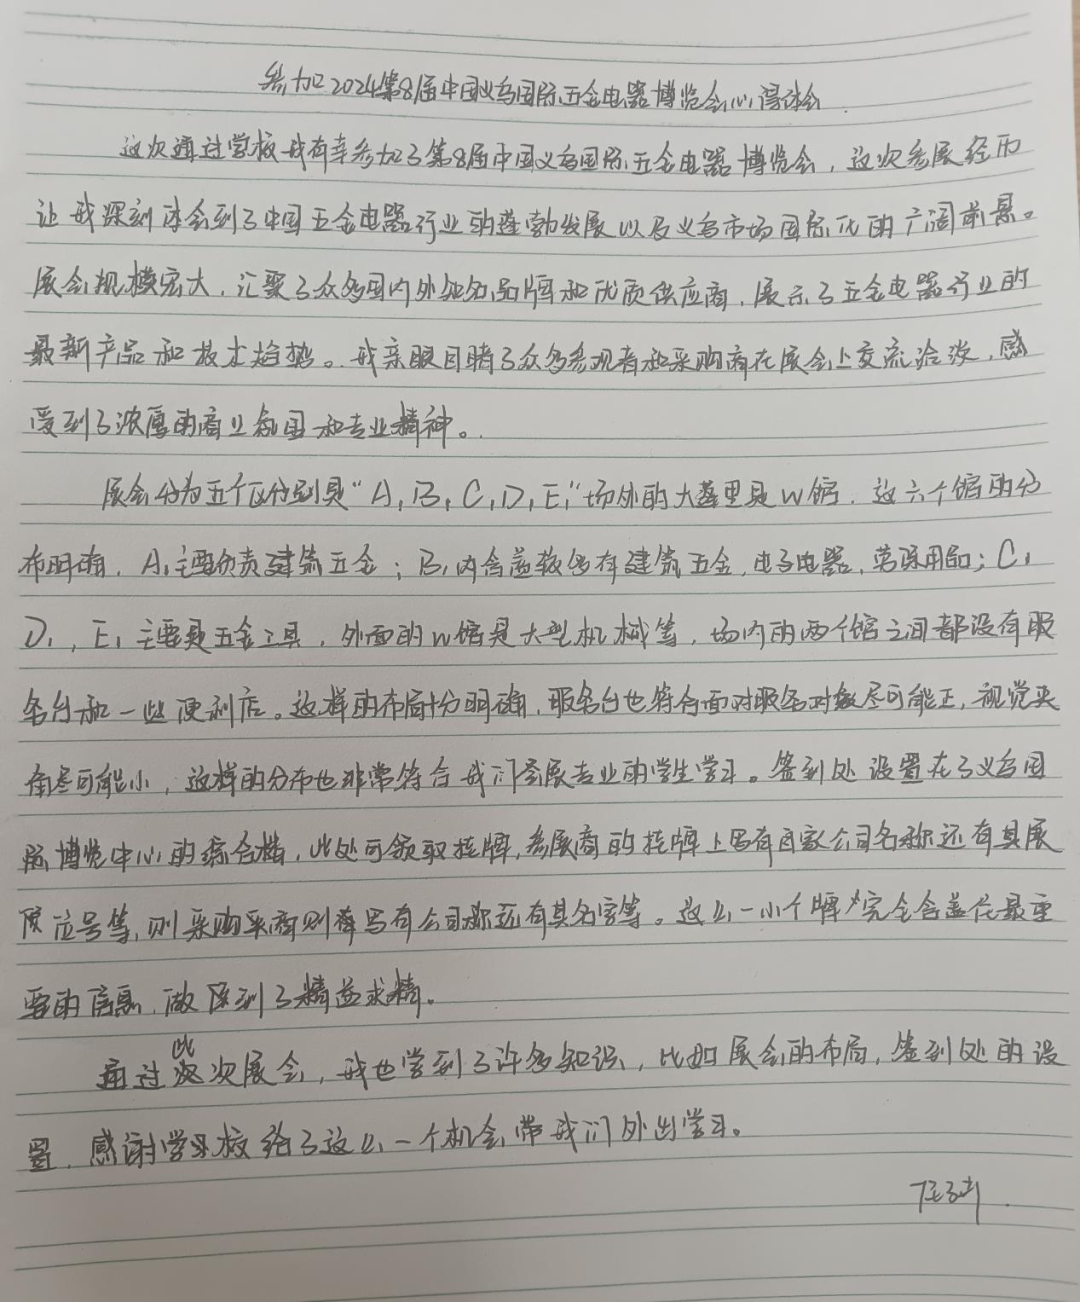 参加2024第8届中国义乌国际五金电器博览会心得体会
这次通过学校我有幸参加了第8届中国义乌国际五金电器博览会，这次参展经历
让我深刻体会到了中国五金电器行业的蓬勃发展以及义乌市场国际化的广阔前景。
展会规模宏大，汇聚了众多国内外知名品牌和优质供应商，展示了五金电器行业的
最新产品和技术趋势。我亲眼目睹了众多参观者和采购商在展会上交流洽谈，感
受到了浓厚的商业氛围和专业精神。
展会分为五个区分别是“A1,B1,C1,D1,E1”场外的大蓬里是W馆，这六个馆的分
布明确，A1主要负责建筑五金；B1内含盖较多有建筑五金，电子电器，劳保用品；C1
D1，E1主要是五金工具，外面的W馆是大型机械等，场内的两个馆之间都设有服
务台和一些便利店。这样的布局十分明确，服务台也符合面对服务对象尽可能正，视觉夹
角尽可能小，这样的分布也非常符合我们会展专业的学生学习。签到处设置在了义乌国
际博览中心的综合楼，此处可领取挂牌，参展商的挂牌上写有自家公司名称还有其展
位号等，则采购商则将写有公司称还有其名字等。这么一小个牌完全含盖在最重
要的信息，做到了精益求精。
通过此次展会，我也学到了许多知识，比如展会的布局，签到处的设
置，感谢学校给了这么一个机会带我们外出学习。